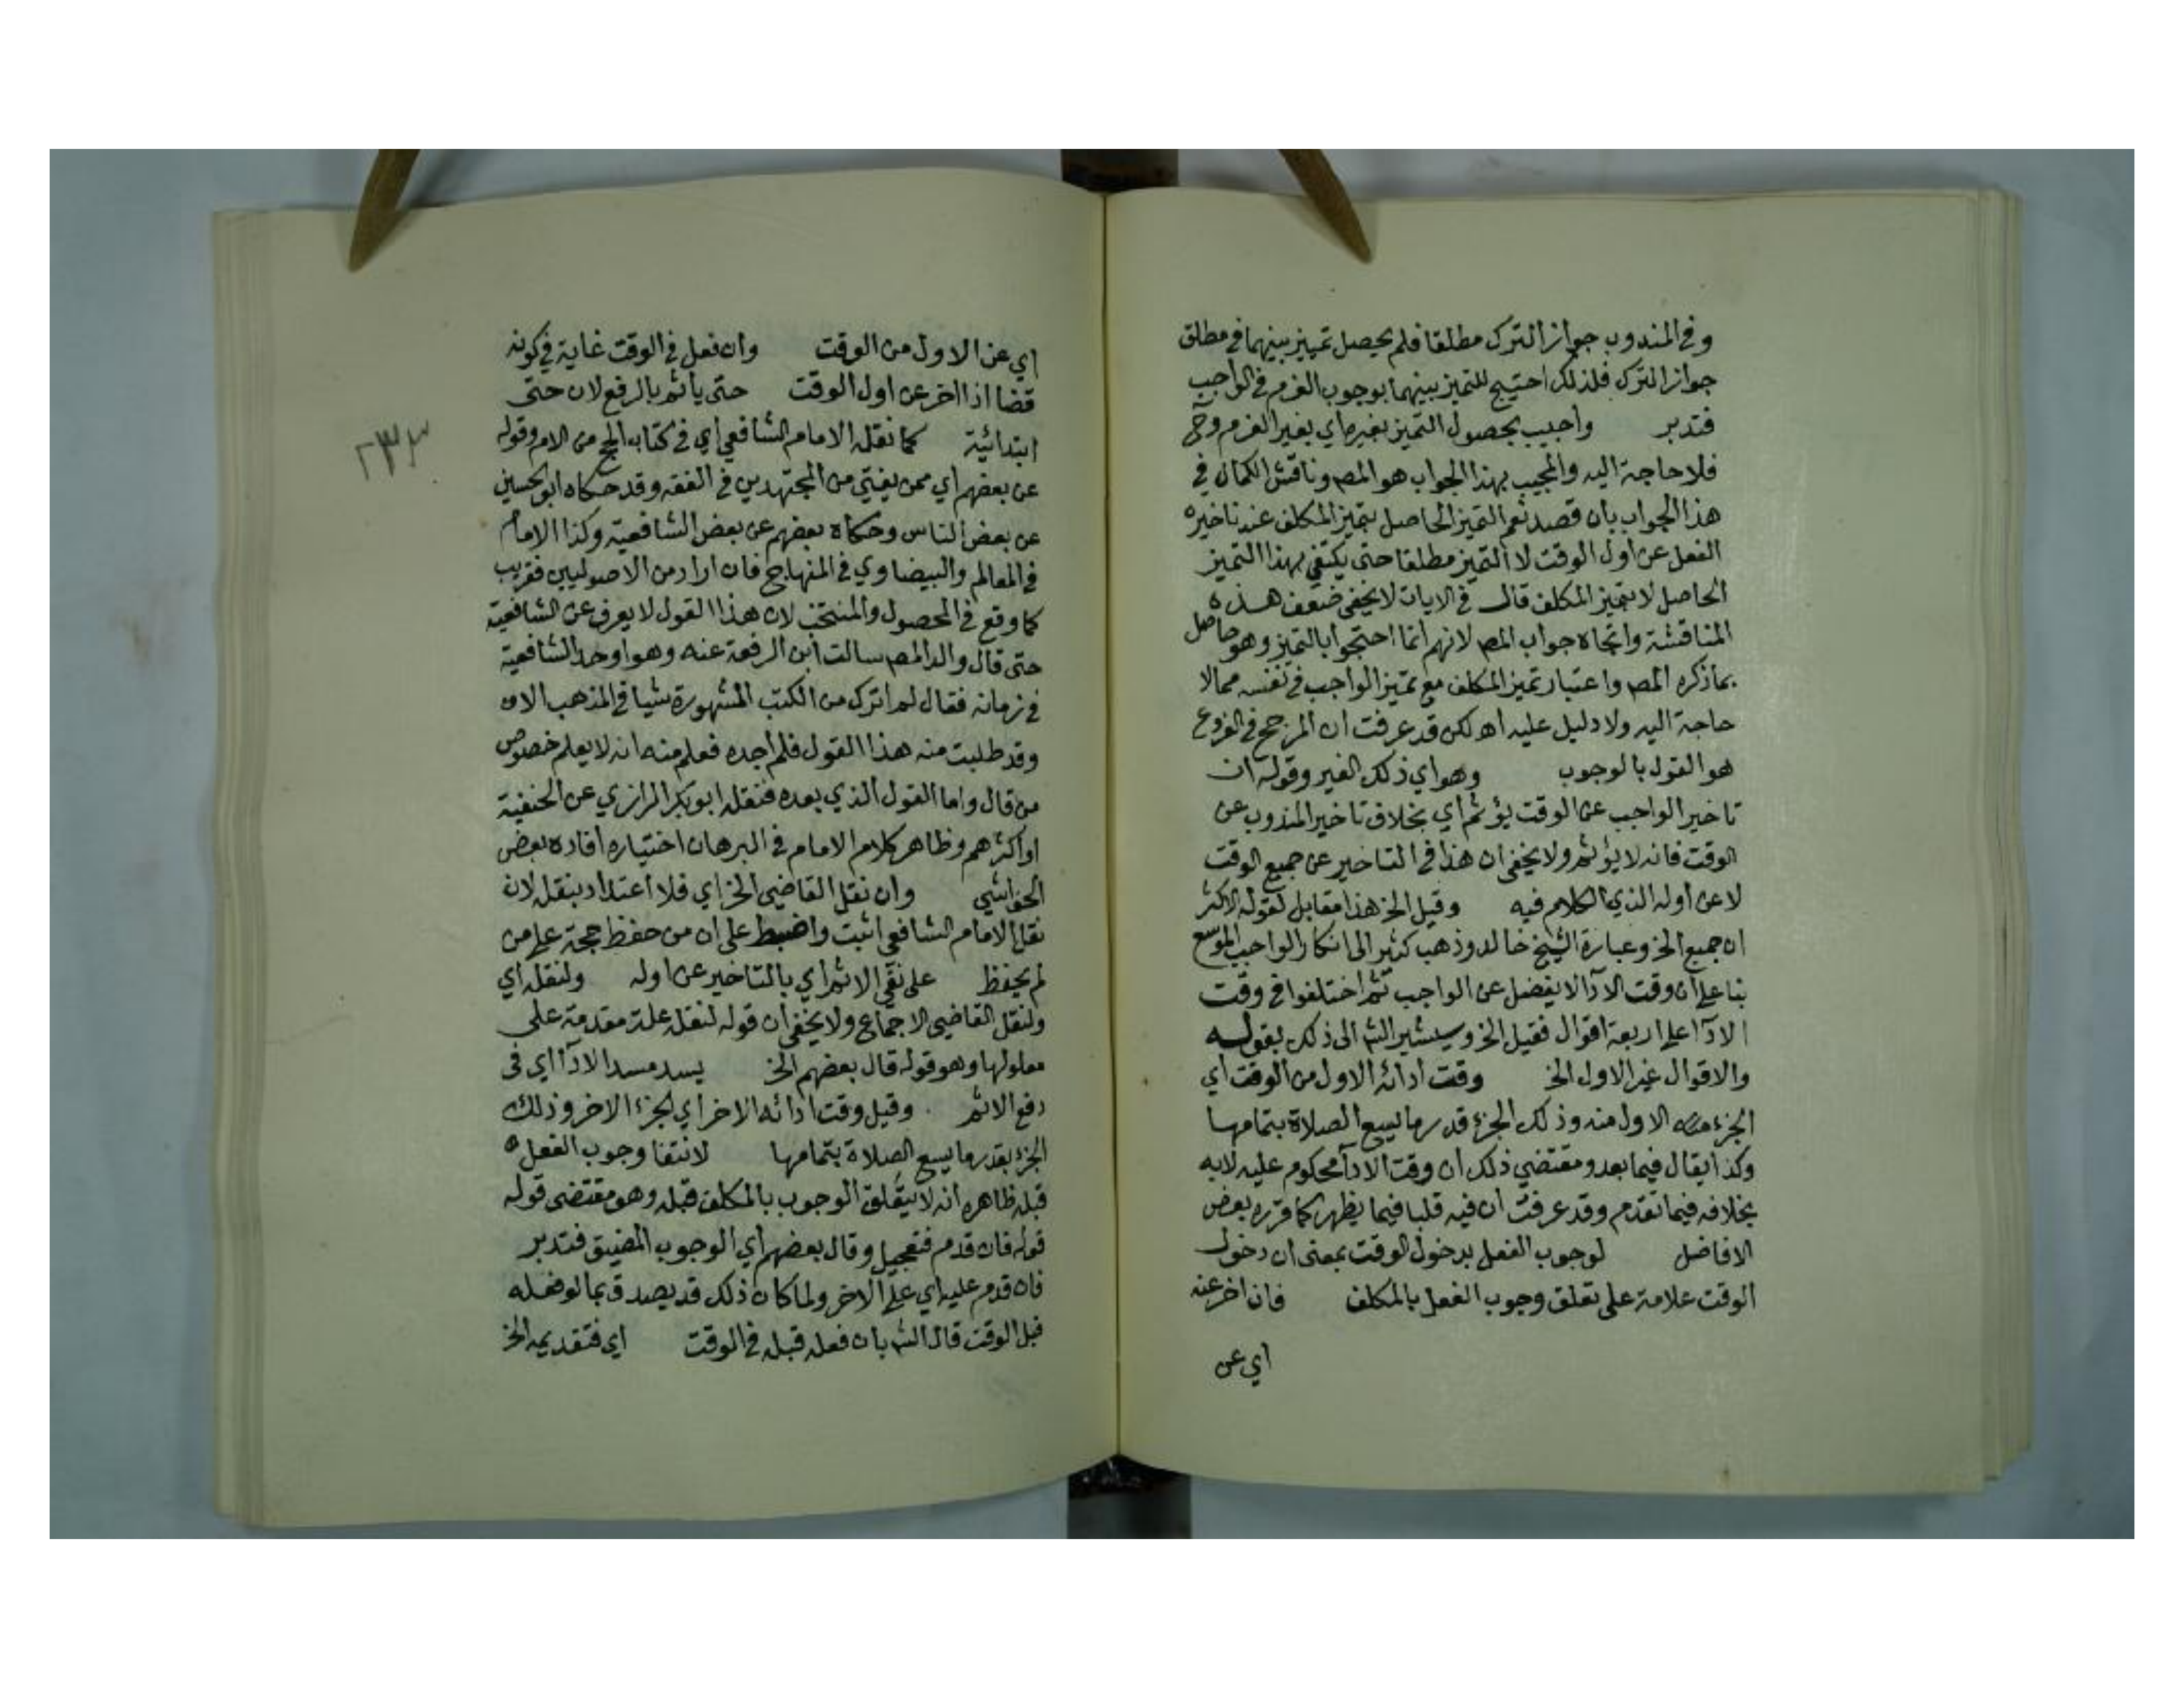 وفي المندوب جواز الترك مطلقا فلم يحصل تمييز بينهما في مطلق
جواز الترك فلذلك احتيج للتميز بينهما بوجوب العزم في الواجب
فتدبر واجيب بحصول التميز بغيره اي بغير العزم وح
فلا حاجة اليه والمجيب بهذا الجواب هو المصـ وناقش الكمال في
هذا الجواب بان قصدنعم التميز الحاصل بتميز المكلف عند تاخيره
الفعل عن اول الوقت لا التميز مطلقا حتى يكتفي بهذا التميز
الحاصل لا بتميز المكلف قال في الايات لا يخفى ضعف هذه
المناقشة واتجاه جواب المصـ لانهم انما احتجوا بالتميز وهو حاصل
بماذكره المصـ واعتبار تميز المكلف مع تميز الواجب في نفسه ممالا
حاجة اليه ولا دليل عليه اهـ لكن قد عرفت ان المرجح في الفروع
هو القول بالوجوب وهو اي ذلك الغير وقوله ان
تاخير الواجب عن الوقت يؤثم اي بخلاف تاخير المندوب عن
الوقت فانه لا يؤثم ولا يخفى ان هذا في التاخير عن جميع الوقت
لا عن اوله الذي الكلام فيه وقيل الخ هذا مقابل لقوله الاكثر
ان جميع الخ وعبارة الشيخ خالد وذهب كثير الى انكار الواجب الموسع
بنا على ان وقت الادآ لا يفضل عن الواجب ثم اختلفوا في وقت
الادآ على اربعة اقوال فقيل الخ وسيشير الشـ الى ذلك بقوله
والاقوال غير الاول الخ وقت ادائه الاول من الوقت اي
الجزء منه الاول منه وذلك الجزء قدر ما يسع الصلاة بتمامها
وكذا يقال فيما بعد ومقتضى ذلك ان وقت الادآ محكوم عليه لا به
بخلافه فيما تقدم وقد عرفت ان فيه قلبا فيما يظهر كما قرره بعض
الافاضل لوجوب الفعل بدخول الوقت بمعنى ان دخول
الوقت علامة على تعلق وجوب الفعل بالمكلف فان اخر عنه
اي عن
اي عن الاول من الوقت وان فعل في الوقت غاية في كونه
قضا اذا اخر عن اول الوقت حتى يأثم بالرفع لان حتى
ابتدائية كما نقله الامام الشافعي اي في كتاب الحج من الام وقوله
عن بعضهم اي ممن يفتي من المجتهدين في الفقه وقد حكاه ابو الحسين
عن بعض الناس وحكاه بعضهم عن بعض الشافعية وكذا الامام
في المعالم والبيضاوي في المنهاج فان اراد من الاصوليين فقريب
كما وقع في المحصول والمنتخب لان هذا القول لا يعرف عن الشافعية
حتى قال والد المصـ سالت ابن الرفعة عنه وهو اوحد الشافعية
في زمانه فقال لم اترك من الكتب المشهورة شيا في المذهب الا
وقد طلبت منه هذا القول فلم اجده فعلم منه انه لا يعلم خصوص
من قال واما القول الذي بعده فنقله ابو بكر الرازي عن الحنفية
او اكثرهم وظاهر كلام الامام في البرهان اختياره افاده بعض
الحواشي وان نقل القاضي الخ اي فلا اعتداد بنقله لان
نقل الامام الشافعي اثبت واضبط على ان من حفظ حجة على من
لم يحفظ على نفي الاثم اي بالتاخير عن اوله ولنقله اي
ولنقل القاضي الاجماع ولا يخفى ان قوله لنقله علة مقدمة على
معلولها وهو قوله قال بعضهم الخ يسد مسد الادآ اي في
دفع الاثم وقيل وقت ادائه الاخر اي الجزء الاخر وذلك
الجزء بقدر ما يسع الصلاة بتمامها لانتفا وجوب الفعل
قبله ظاهره انه لا يتعلق الوجوب بالمكلف قبله وهو مقتضى قوله
قوله فان قدم فتعجيل وقال بعضهم اي الوجوب المضيق فتدبر
فان قدم عليه اي على الاخر ولما كان ذلك قد يصدق بما لو فعله
قبل الوقت قال الشـ بان فعله قبله في الوقت اي فتقديمه الخ
٢٣٣